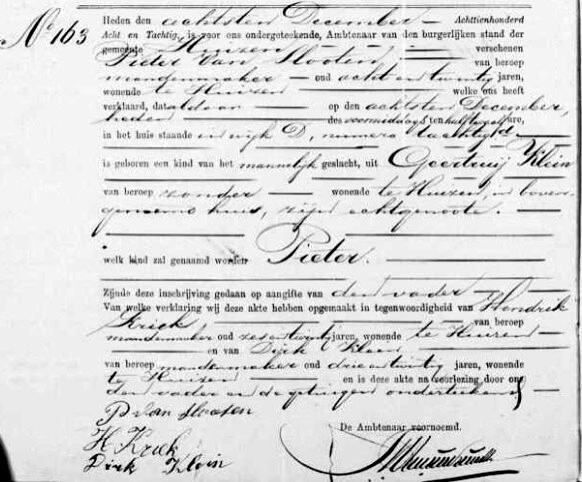 No 163
Heden den achtsten December Achttienhonderd
Acht en Tachtig, is voor ons ondergeteekende, Ambtenaar van den burgerlijken stand der
gemeente Huizen verschenen
Pieter van Slooten, van beroep
mandenmaker oud acht en twintig jaren,
wonende te Huizen welke ons heeft
verklaard, dat aldaar op den achtsten December,
heden des voormiddags ten half twaalf ure,
in het huis staande in wijk D, numero tachtig
is geboren een kind van het mannelijk geslacht, uit Geertruij Klein
van beroep zonder wonende te Huizen, in boven-
genoemd huis, zijne echtgenoote.
welk kind zal genaamd worden Pieter.
Zijnde deze inschrijving gedaan op aangifte van den vader
Van welke verklaring wij deze akte hebben opgemaakt in tegenwoordigheid van Hendrik
Kriek, van beroep
mandenmaker oud zes en twintig jaren, wonende te Huizen
en van Dirk Klein
van beroep mandenmaker oud drie en twintig jaren, wonende
te Huizen en is deze akte na voorlezing door ons
den vader en de getuigen onderteekend
P van Slooten
De Ambtenaar voornoemd.
H Kriek
Dirk Klein